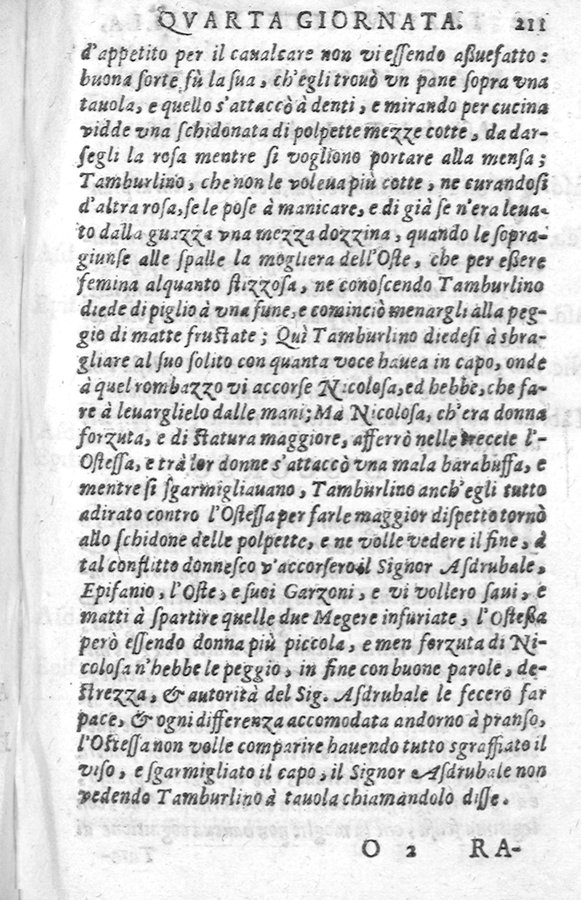 QVARTA GIORNATA. 211
d'appetito per il caualcare non vi eſſendo aſſuefatto :
buona ſorte fù la ſua, ch'egli trouò vn pane ſopra vna
tauola, e quello s'attaccò à denti, e mirando per cucina
vidde vna ſchidonata di polpette mezze cotte, da dar-
ſegli la roſa mentre ſi vogliono portare alla menſa;
Tamburlino, che non le voleua più cotte, ne curandoſi
d'altra roſa, ſe le poſe à manicare, e di già ſe n'era leua-
to dalla guazza vna mezza dozzina, quando le ſopra-
giunſe alle ſpalle la mogliera dell'Oſte, che per eſſere
femina alquanto ſtizzoſa, ne conoſcendo Tamburlino
diede di piglio à vna fune, e cominciò menargli alla peg-
gio di matte fruſtate; Quì Tamburlino diedeſi à sbra-
gliare al ſuo ſolito con quanta voce hauea in capo, onde
à quel rombazzo vi accorſe Nicoloſa, ed hebbe, che fa-
re à leuarglielo dalle mani; Mà Nicoloſa, ch'era donna
forzuta, e di ſtatura maggiore, afferrò nelle treccie l'-
Oſteſſa, e trà lor donne s'attaccò vna mala barabuffa, e
mentre ſi ſgarmigliauano, Tamburlino anch'egli tutto
adirato contro l'Oſteſſa per farle maggior diſpetto tornò
allo ſchidone delle polpette, e ne volle vedere il fine, à
tal conflitto donneſco v'accorſero il Signor Aſdrubale,
Epifanio, l'Oſte, e ſuoi Garzoni, e vi vollero ſaui, e
matti à ſpartire quelle due Megere infuriate, l'Oſteſſa
però eſſendo donna più piccola, e men forzuta di Ni-
coloſa n'hebbe le peggio, in fine con buone parole, de-
ſtrezza, & autorità del Sig. Aſdrubale le fecero far
pace, & ogni differenza accomodata andorno à pranſo,
l'Oſteſſa non volle comparire hauendo tutto sgraffiato il
viſo, e ſgarmigliato il capo, il Signor Aſdrubale non
vedendo Tamburlino à tauola chiamandolo diſſe.
O 2 RA-